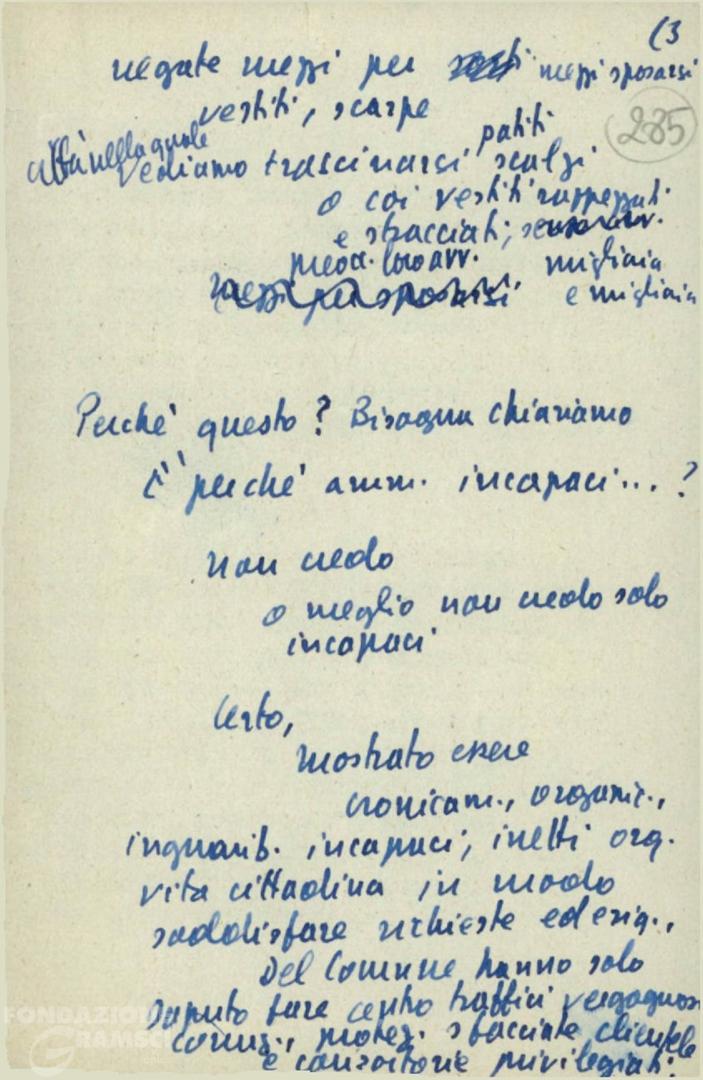 (3
negate mezzi per mezzi sposarsi
vestiti, scarpe
285
città nella quale
vediamo trascinarsi patiti scalzi
o coi vestiti rappezzati
e stracciati;
preocc. loro avv. migliaia
mezzi per sposarsi e migliaia
Perché questo? Bisogna chiariamo
È perché amm. incapaci...?
non credo
o meglio non credo solo
incapaci
Certo,
mostrato essere
cronicam., organic.,
inguarib. incapaci, inetti org.
vita cittadina in modo
soddisfare richieste ed esig.,
del Comune hanno solo
saputo fare centro traffici vergognosi
corruz., protez. sfacciate clientele
e consorterie privilegiati.
FONDAZIONE
GRAMSCI